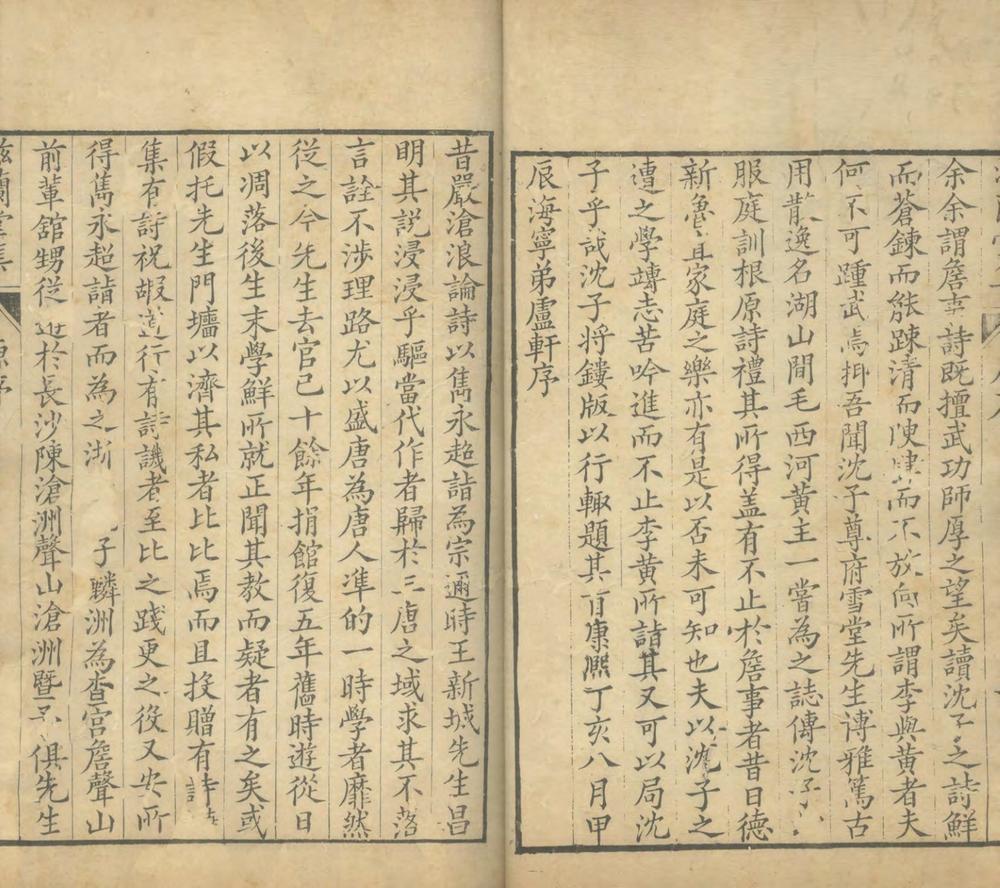 余余謂詹事詩既擅武功師厚之望矣讀沈子之詩鮮
而蒼鍊而能踈清而腴肆而不放向所謂李與黃者夫
何不可踵武焉抑吾聞沈子尊府雪堂先生博雅篤古
用散逸名湖山間毛西河黃主一嘗為之誌傳沈子
服庭訓根原詩禮其所得盖有不止於詹事者昔日德
新魯直家庭之樂亦有是以否未可知也夫以沈子之
遭之學竱志苦吟進而不止李黃所詣其又可以局沈
子乎哉沈子將鏤版以行輙題其首康熙丁亥八月甲
辰海寧弟盧軒序
昔嚴滄浪論詩以雋永超詣為宗邇時王新城先生昌
明其説浸浸乎驅當代作者歸於三唐之域求其不落
言詮不涉理路尤以盛唐為唐人凖的一時學者靡然
從之今先生去官已十餘年捐館復五年舊時遊從日
以凋落後生末學鮮所就正聞其教而疑者有之矣或
假托先生門墻以濟其私者比比焉而且投贈有詩
集有詩祝嘏道行有詩譏者至比之踐更之役又安所
得雋永超詣者而為之浙 子麟洲為查宮詹聲山
前輩舘甥從遊於長沙陳滄洲聲山滄洲暨 俱先生